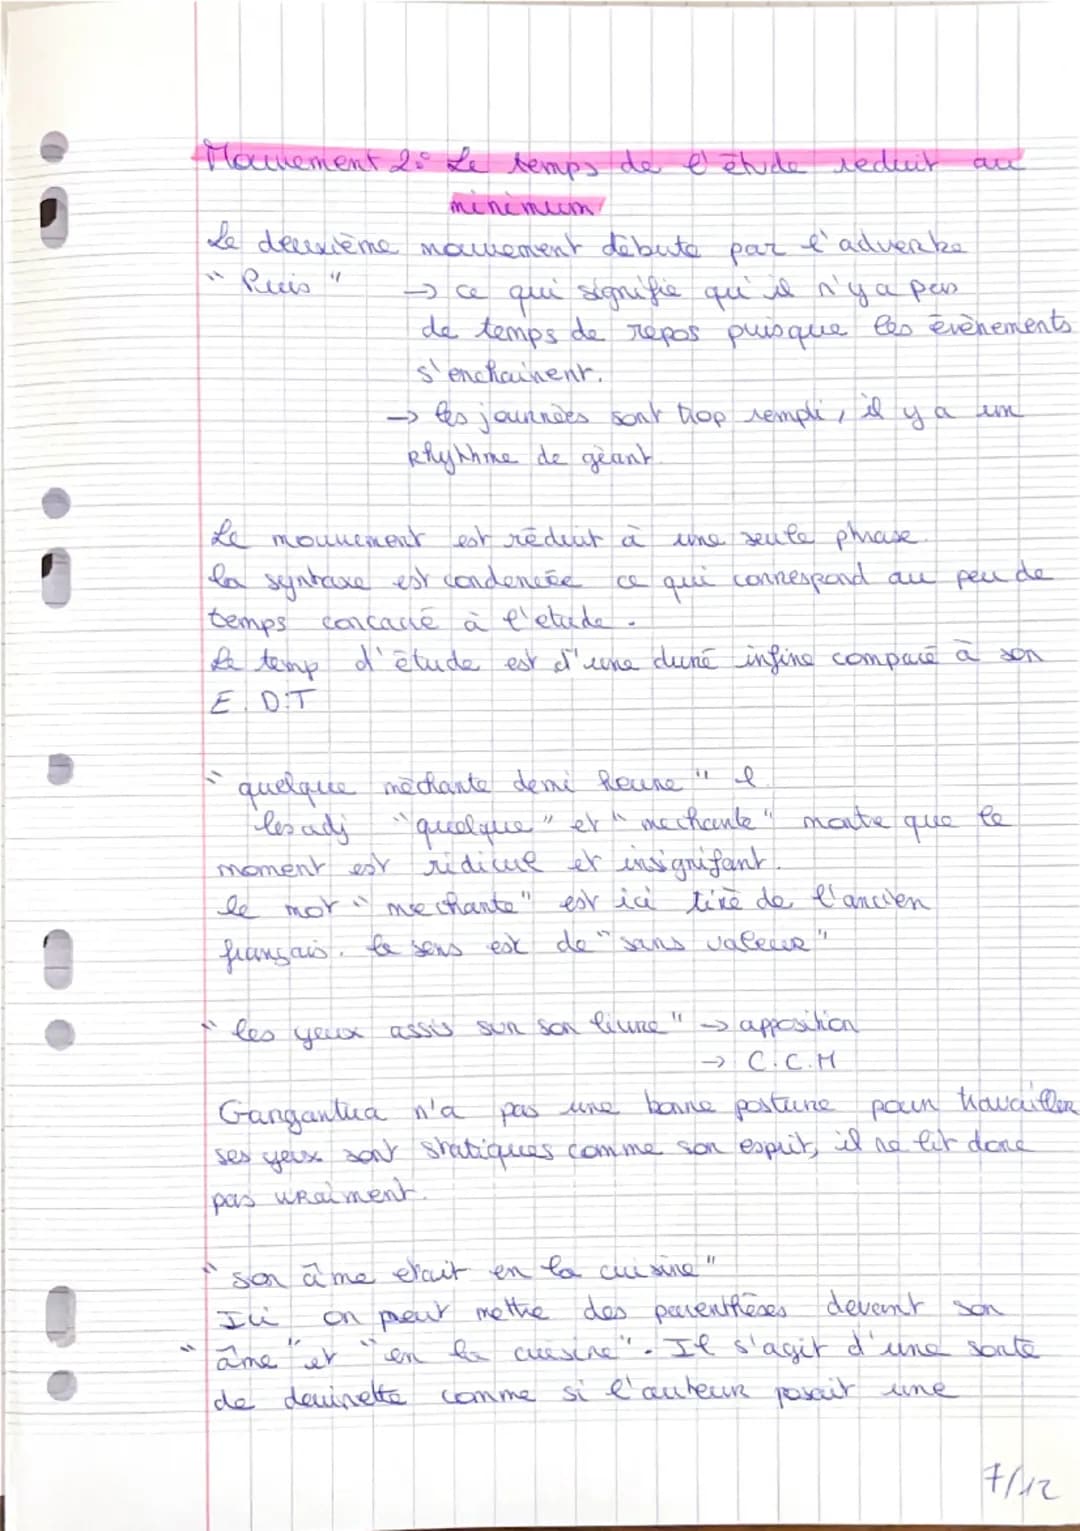 Mouvement 2: Le temps de l'étude reduit au
minimum
Le deuxième mouvement débute par l'adverbe
" Puis " → ce qui signifie qu'il n'y a pas
de temps de repos puisque les évènements
s'enchainent.
→ les journées sont trop rempli, il y a un
Rhythme de géant.
Le mouvement est réduit à une seule phrase.
la syntaxe est condencée ce qui correspond au peu de
temps concacré à l'etude.
Le temp d'étude est d'une duré infine comparé à son
E. D.T
" quelque méchante demi heure " l.
les adj "quelque" et "mechante" montre que le
moment est ridicue et insignifant.
le mot "mechante" est ici tiré de l'ancien
français. le sens est de "sans valeur"
" les yeux assis sur son livre" → apposition
→ C.C.M
Gangantua n'a pas une bonne posture pour travailler
ses yeux sont statiques comme son esprit, il ne lit donc
pas vraiment.
" son âme etait en la cuisine"
Ici on peut mettre des parenthèses devant son
"âme" et "en la cuisine". Il s'agit d'une sorte
de devinette comme si l'auteur posait une
7/12